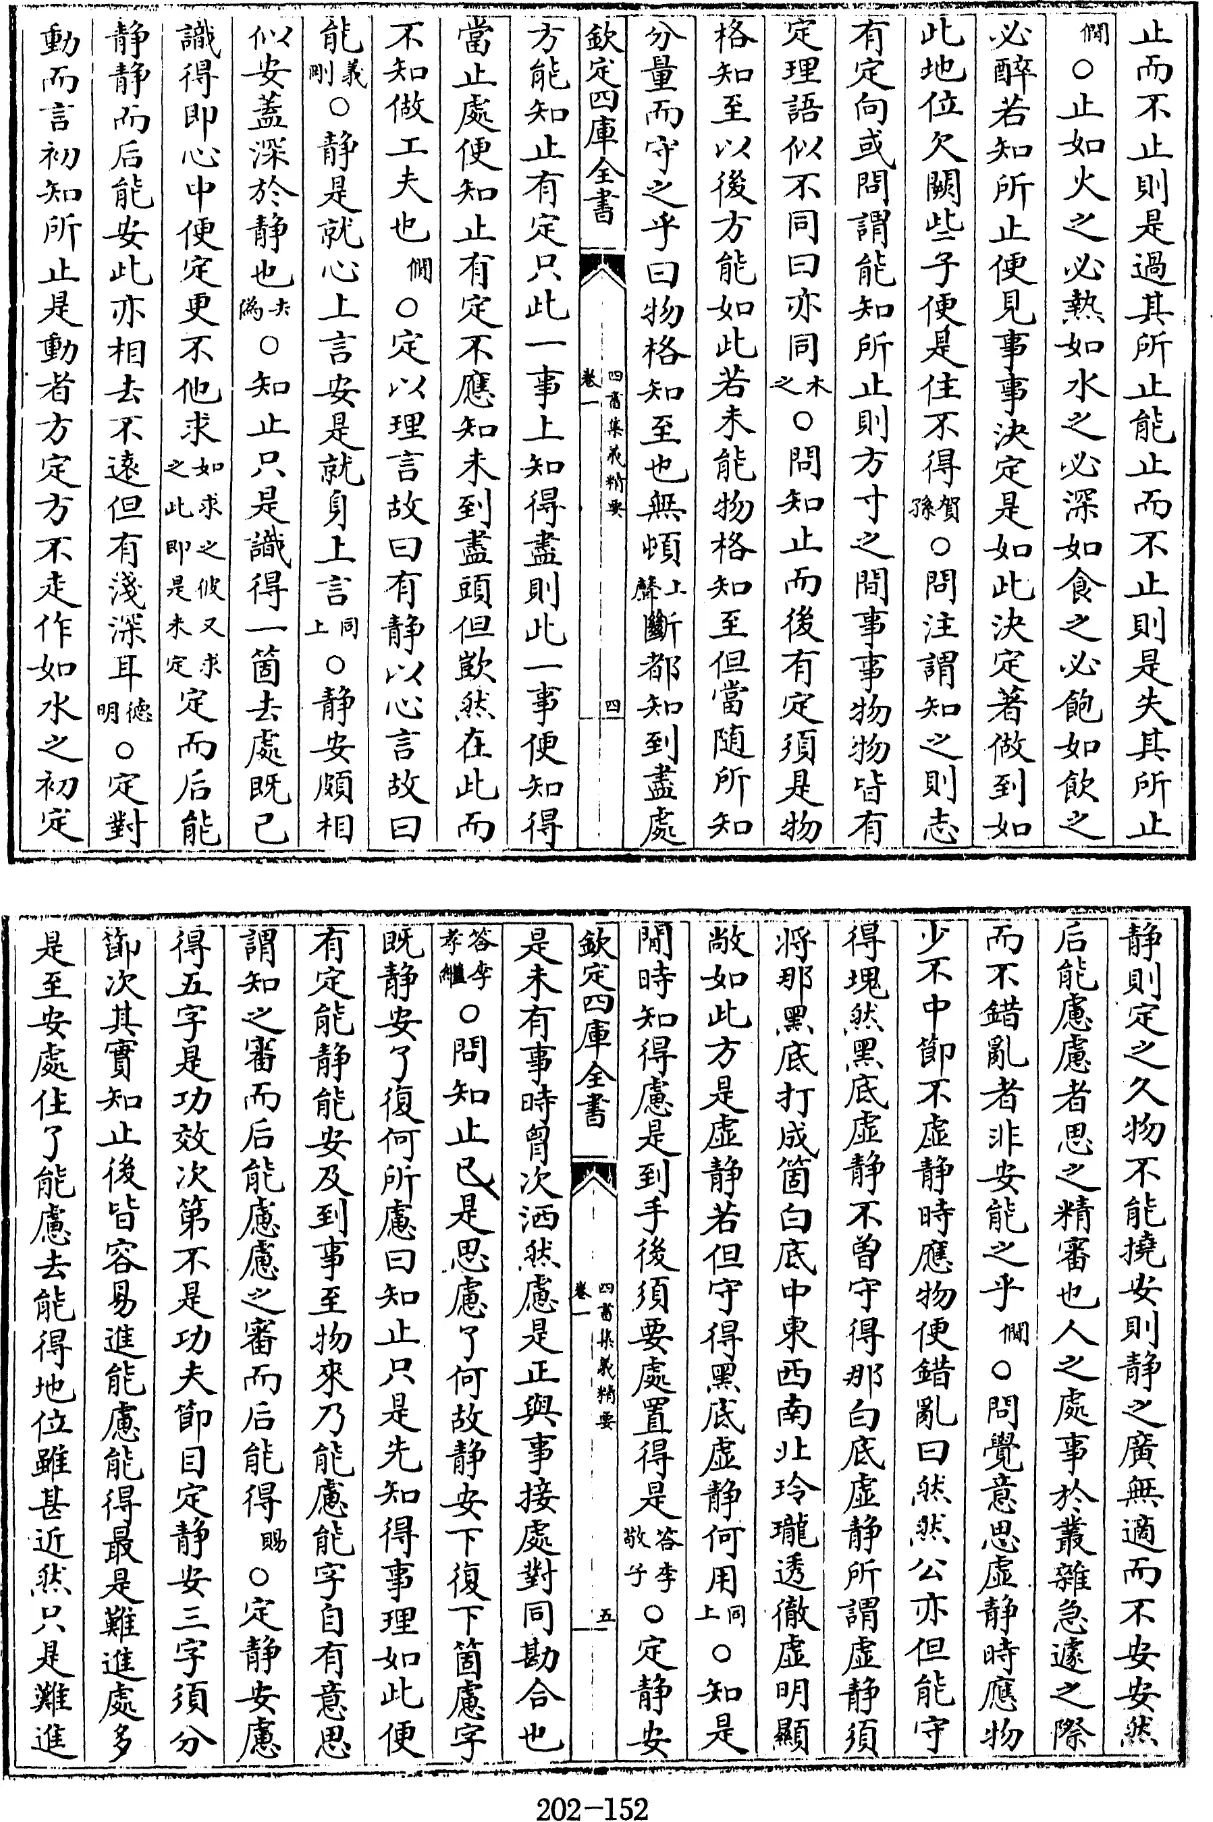 止而不止則是過其所止能止而不止則是失其所止
僩○止如火之必熱如水之必深如食之必飽如飲之
必醉若知所止便見事事決定是如此決定著做到如
此地位欠闕些子便是住不得賀孫○問注謂知之則志
有定向或問謂能知所止則方寸之間事事物物皆有
定理語似不同曰亦同木之○問知止而後有定須是物
格知至以後方能如此若未能物格知至但當隨所知
分量而守之乎曰物格知至也無頓上聲斷都知到盡處
欽定四庫全書
四書集義精要
卷一
四
方能知止有定只此一事上知得盡則此一事便知得
當止處便知止有定不應知未到盡頭但歉然在此而
不知做工夫也僩○定以理言故曰有静以心言故曰
能義剛○静是就心上言安是就身上言同上○静安頗相
似安蓋深於静也夫僞○知止只是識得一箇去處既已
識得即心中便定更不他求如求之彼又求之此即是未定定而后能
静静而后能安此亦相去不遠但有淺深耳德明○定對
動而言初知所止是動者方定方不走作如水之初定
静則定之久物不能撓安則静之廣無適而不安安然
后能慮慮者思之精審也人之處事於叢雜急遽之際
而不錯亂者非安能之乎僩○問覺意思虛静時應物
少不中節不虛静時應物便錯亂曰然然公亦但能守
得塊然黑底虛静不曾守得那白底虛静所謂虛静須
將那黑底打成箇白底中東西南北玲瓏透徹虛明顯
敞如此方是虛静若但守得黑底虛静何用同上○知是
閒時知得慮是到手後須要處置得是答李敬子○定静安
欽定四庫全書
四書集義精要
卷一
五
是未有事時胷次洒然慮是正與事接處對同勘合也
答李孝繼○問知止已是思慮了何故静安下復下箇慮字
既静安了復何所慮曰知止只是先知得事理如此便
有定能静能安及到事至物來乃能慮能字自有意思
謂知之審而后能慮慮之審而后能得賜○定静安慮
得五字是功效次第不是功夫節目定静安三字須分
節次其實知止後皆容易進能慮能得最是難進處多
是至安處住了能慮去能得地位雖甚近然只是難進
202-152